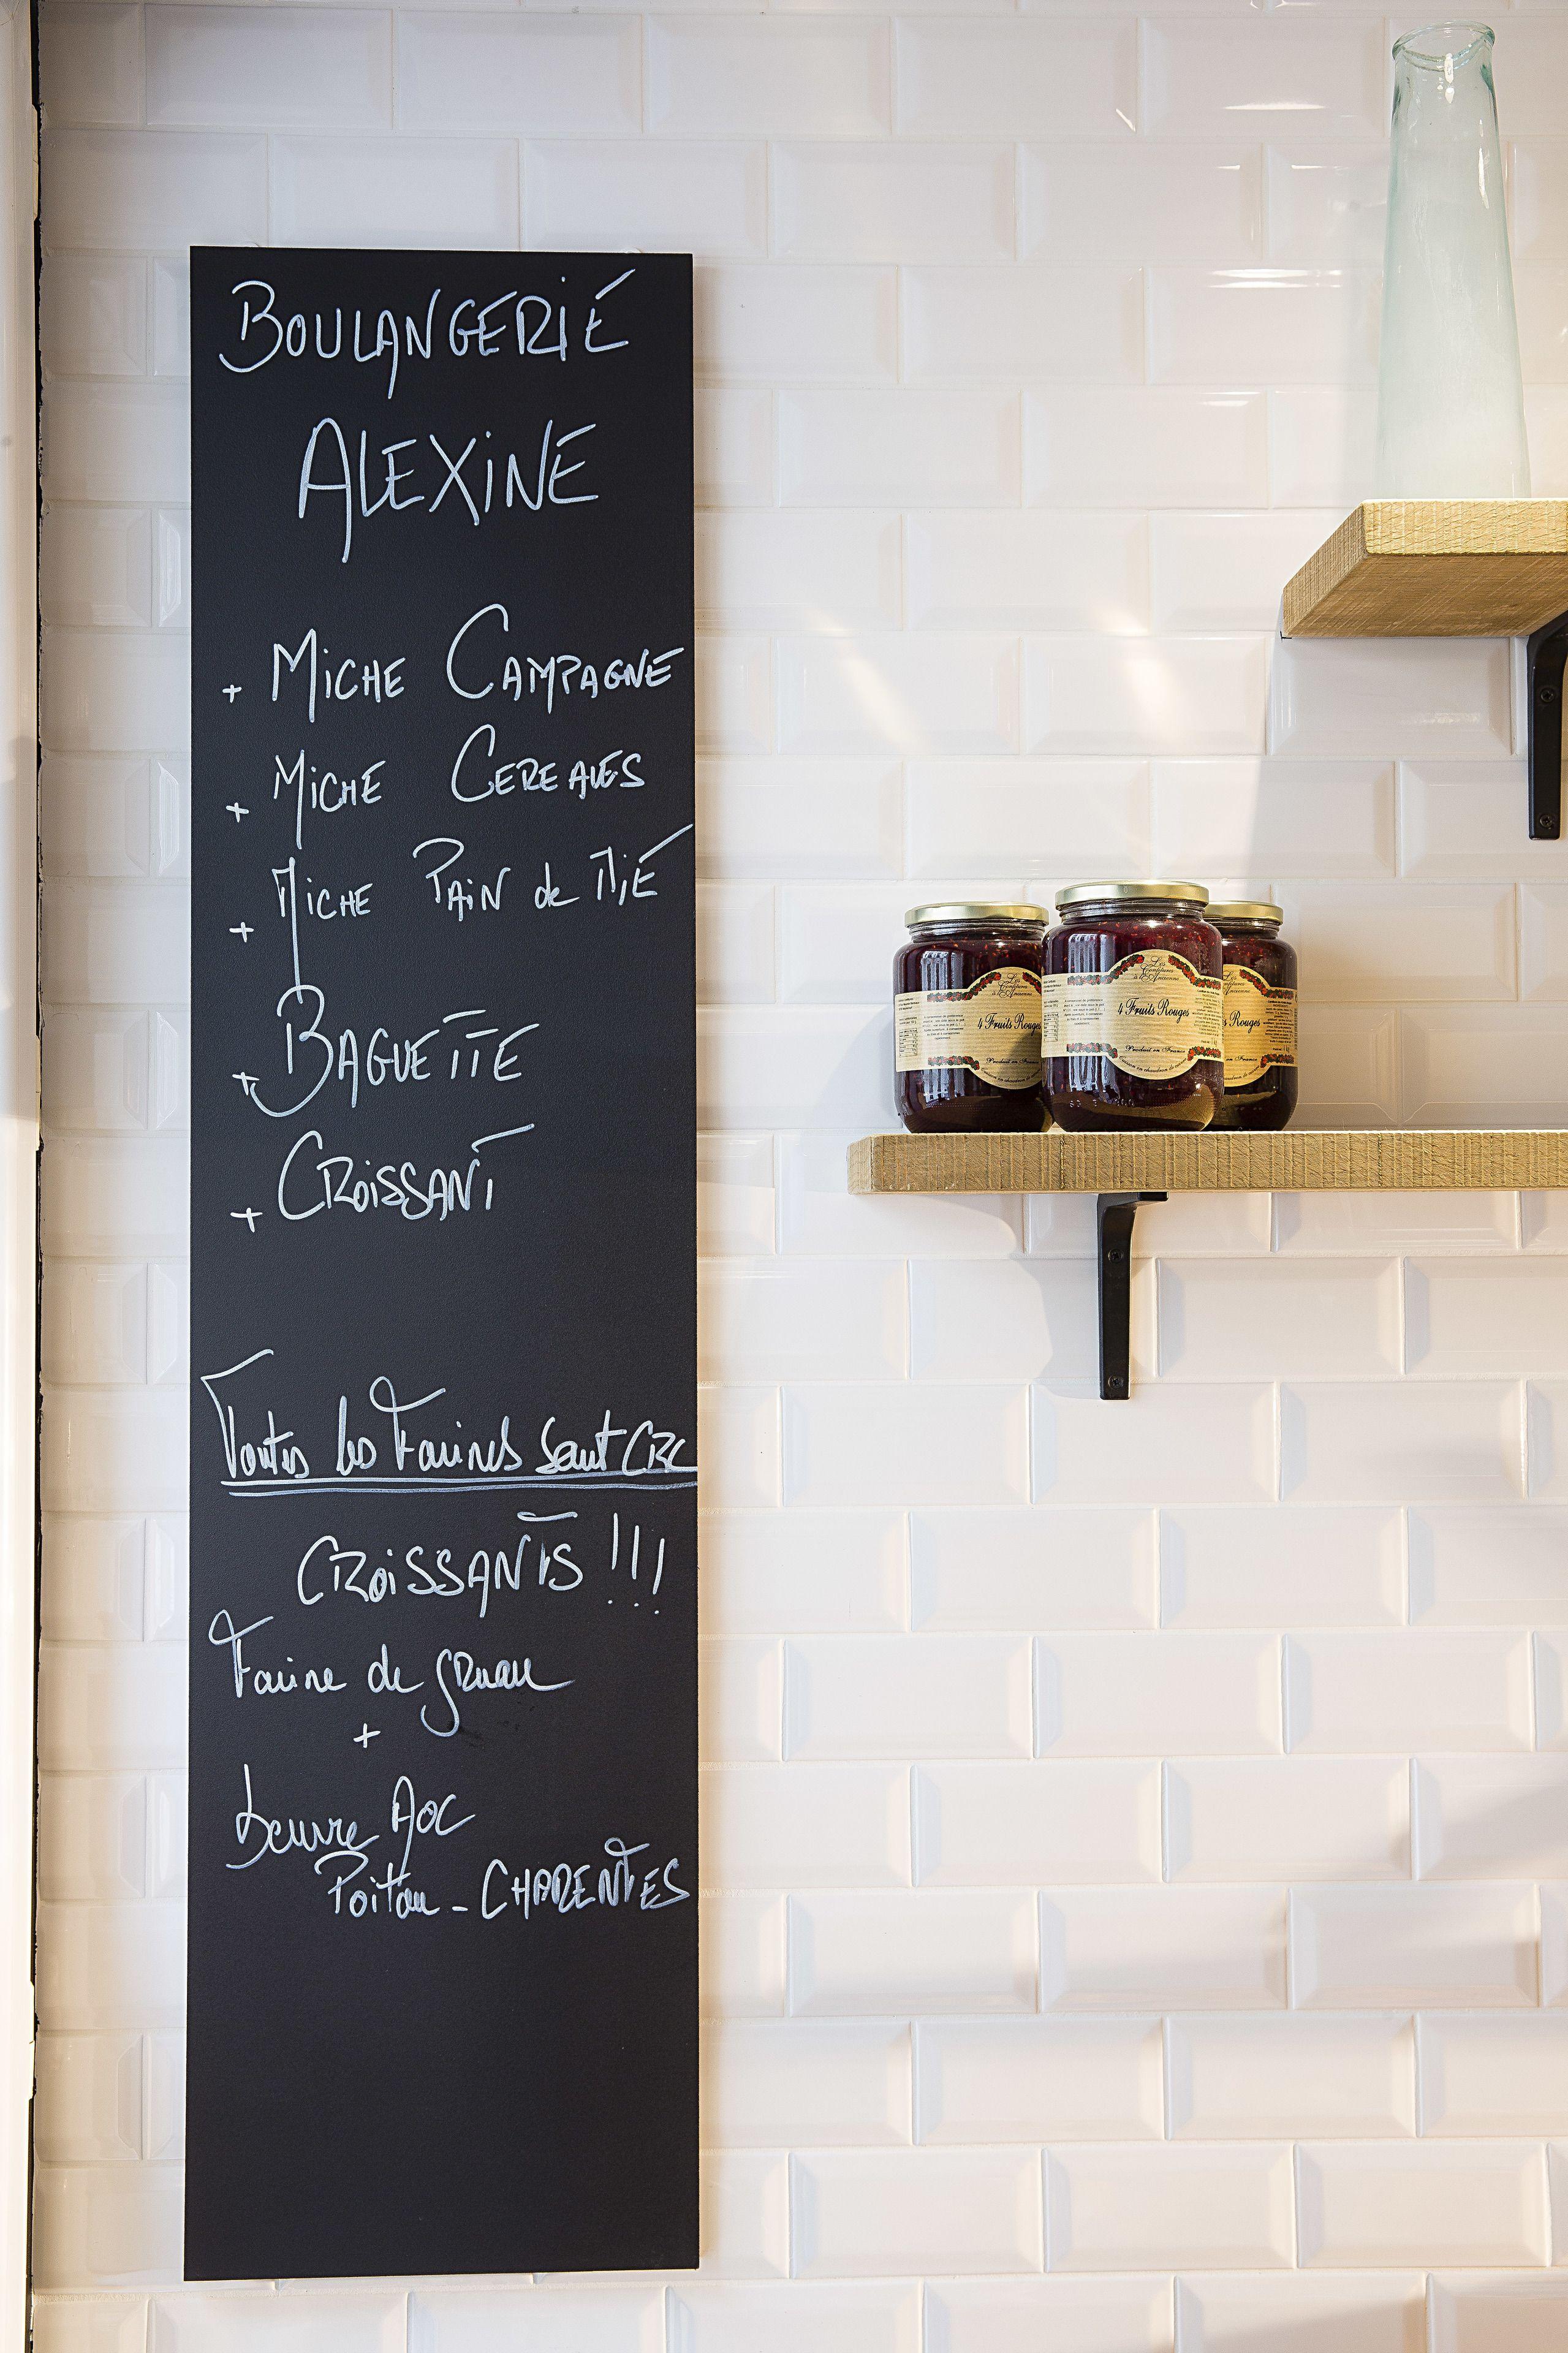 BOULANGERIE
ALEXINE
+ MICHE CAMPAGNE
+ MICHE CEREALES
+ MICHE PAIN de MIE
+ BAGUETTE
+ CROISSANT
Toutes les Farines sont CRC
CROISSANTS !!!
Farine de gruau
+
beurre AOC
Poitou - CHARENTES
Les Confitures à l'Ancienne
4 Fruits Rouges
Produit en France
4 Fruits Rouges
Produit en France
Rouges
en France